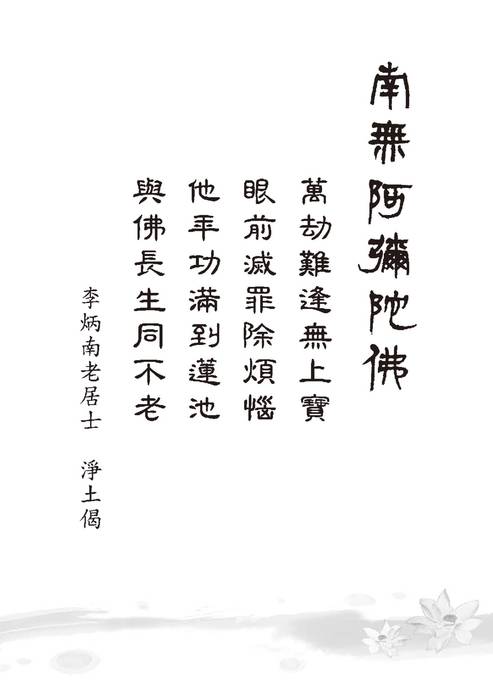 南無阿彌陀佛
萬劫難逢無上寶
眼前滅罪除煩惱
他年功滿到蓮池
與佛長生同不老
李炳南老居士 淨土偈